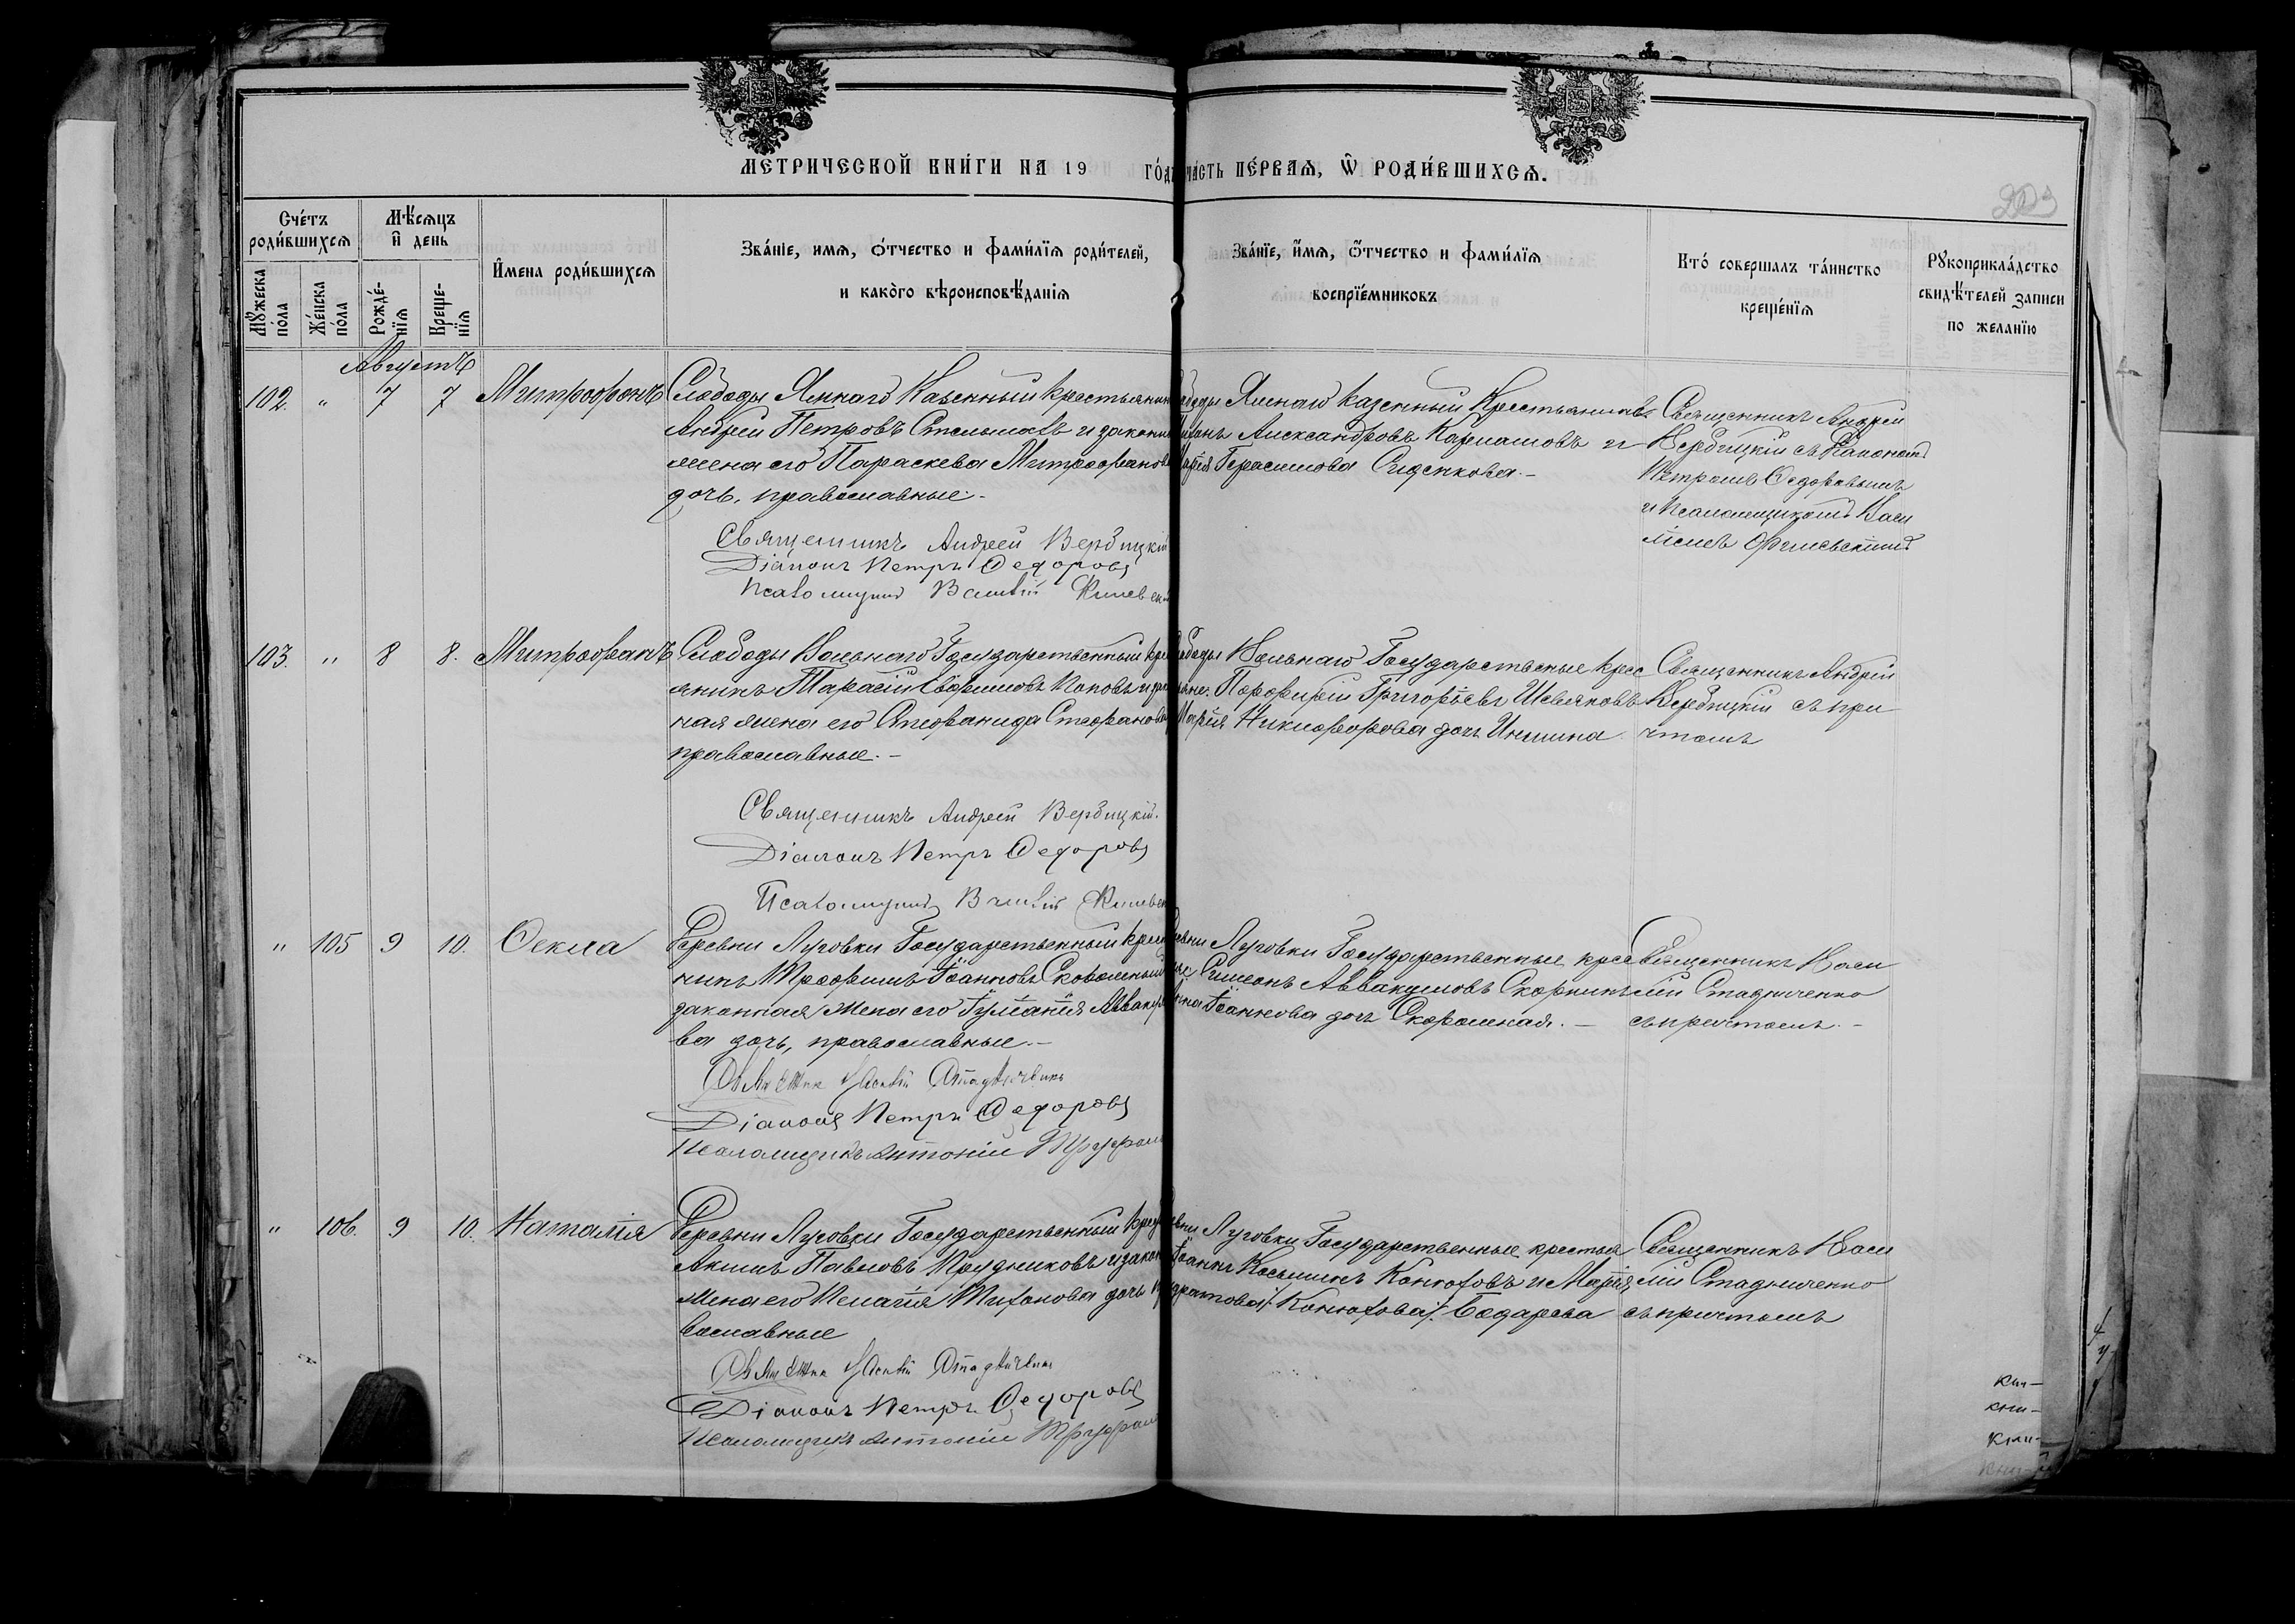 МЕТРИЧЕСКОЙ КНИ́ГИ НА 19 ГО́ДЪ ЧА́СТЬ ПЕ́РВАѦ, Ѽ РОДИ́ВШИХСѦ.
Сче́тъ роди́вшихсѧ
Мѣ́сѧцъ и҆ день
И҆мена роди́вшихсѧ
Зва́нїе, имѧ, ѻ́тчество и фами́лїѧ роди́телей,
и како́го вѣроисповѣ́данїѧ
Зва́нїе, и҆́мѧ, ѻ҆́тчество и фами́лїѧ
воспрїе́мниковъ
Кто́ совершалъ та́инство
креще́нїѧ
Рꙋкоприкла́дство
свидѣ́телей записи
по желанїю
Мꙋжеска по́ла
Же́нска по́ла
Рожде́нїѧ
Креще́нїѧ
Августъ
102. " 7 7 Митрофанъ
Слободы Яснаго Казенный крестьянин
Андрей Петровъ Стельмахъ и законн
жена его Параскева Митрофанова
дочь, православные.-
Священникъ Андрей Вербицкій
Діаконъ Петръ Ѳедоровъ
Псаломщикъ Василій
Яснаго казенный Крестьянинъ
Александровъ Кармановъ и
Герасимова Сиденкова.-
Священникъ Андрей
Вербицкій съ Діакономъ
Петромъ Ѳедоровымъ
и Псаломщикомъ Васи
ліемъ
103. " 8 8. Митрофанъ
Слободы Вольнаго Государственный кре
янинъ Тарасій Евфимовъ Поповъ и зако
ная жена его Стефанида Стефанова
православные.-
Священникъ Андрей Вербицкій.
Діаконъ Петръ Ѳедоровъ
Псаломщикъ Василій
Вольнаго Государственные крес
Порфирій Григорьевъ Шевляковъ
Марія Никифорова дочь Иншина
Священникъ Андрей
Вербицкій съ при
чтомъ
" 105 9 10. Ѳекла
Деревни Луговки Государственный крест
нинъ Трофимъ Іоанновъ Скоромный
законная жена его Іуліанія Аввакумо
ва дочь, православные.-
Василій Стадниченко
Діаконъ Петръ Ѳедоровъ
Псаломщикъ Антоній
Луговки Государственные крес
Симеонъ Аввакумовъ Скоркинъ
Іоаннова дочь Скоромная.-
Священникъ Васи
лій Стадниченко
съ причтомъ.-
" 106. 9 10. Наталія
Деревни Луговки Государственный крес
Акимъ Павловъ Прудниковъ и закон
жена его Пелагія Тихонова дочь п
вославные
Василій Стадниченко
Діаконъ Петръ Ѳедоровъ
Псаломщикъ Антоній
Луговки Государственные крестья
Іоаннъ Косьминъ Конюховъ и Марія
Конюхова Бодарева
Священникъ Васи
лій Стадниченко
съ причтомъ